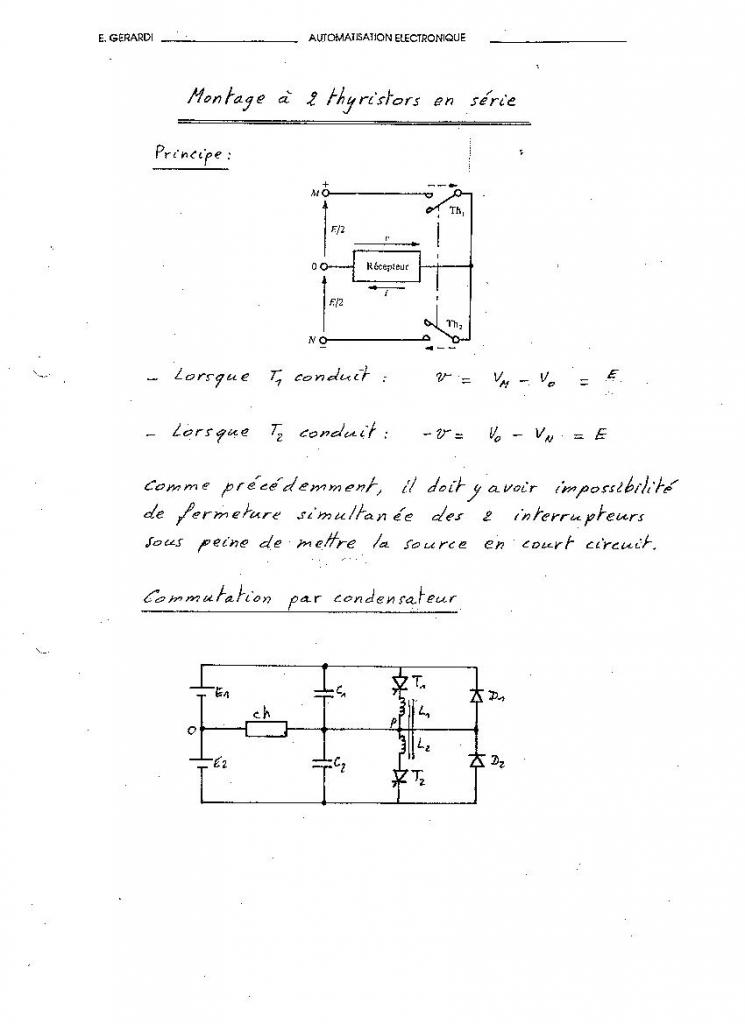 E. GERARDI AUTOMATISATION ELECTRONIQUE
Montage à 2 thyristors en série
Principe :
+
M
Th1
E/2
v
0
Récepteur
i
E/2
Th2
N
–
– Lorsque T1 conduit : v = VM – Vo = E
– Lorsque T2 conduit : -v = Vo – VN = E
Comme précédemment, il doit y avoir impossibilité
de fermeture simultanée des 2 interrupteurs
sous peine de mettre la source en court circuit.
Commutation par condensateur
E1 C1 T1 D1
ch L1
O P
L2
E2 C2 T2 D2